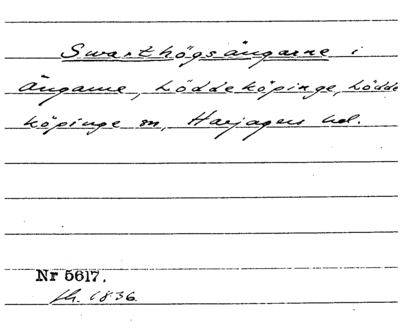 Swarthögsängarne i
Ängarne, Löddeköpinge, Lödde
köpinge sn, Harjagers hd.
Nr 5617.
sh. 1836.